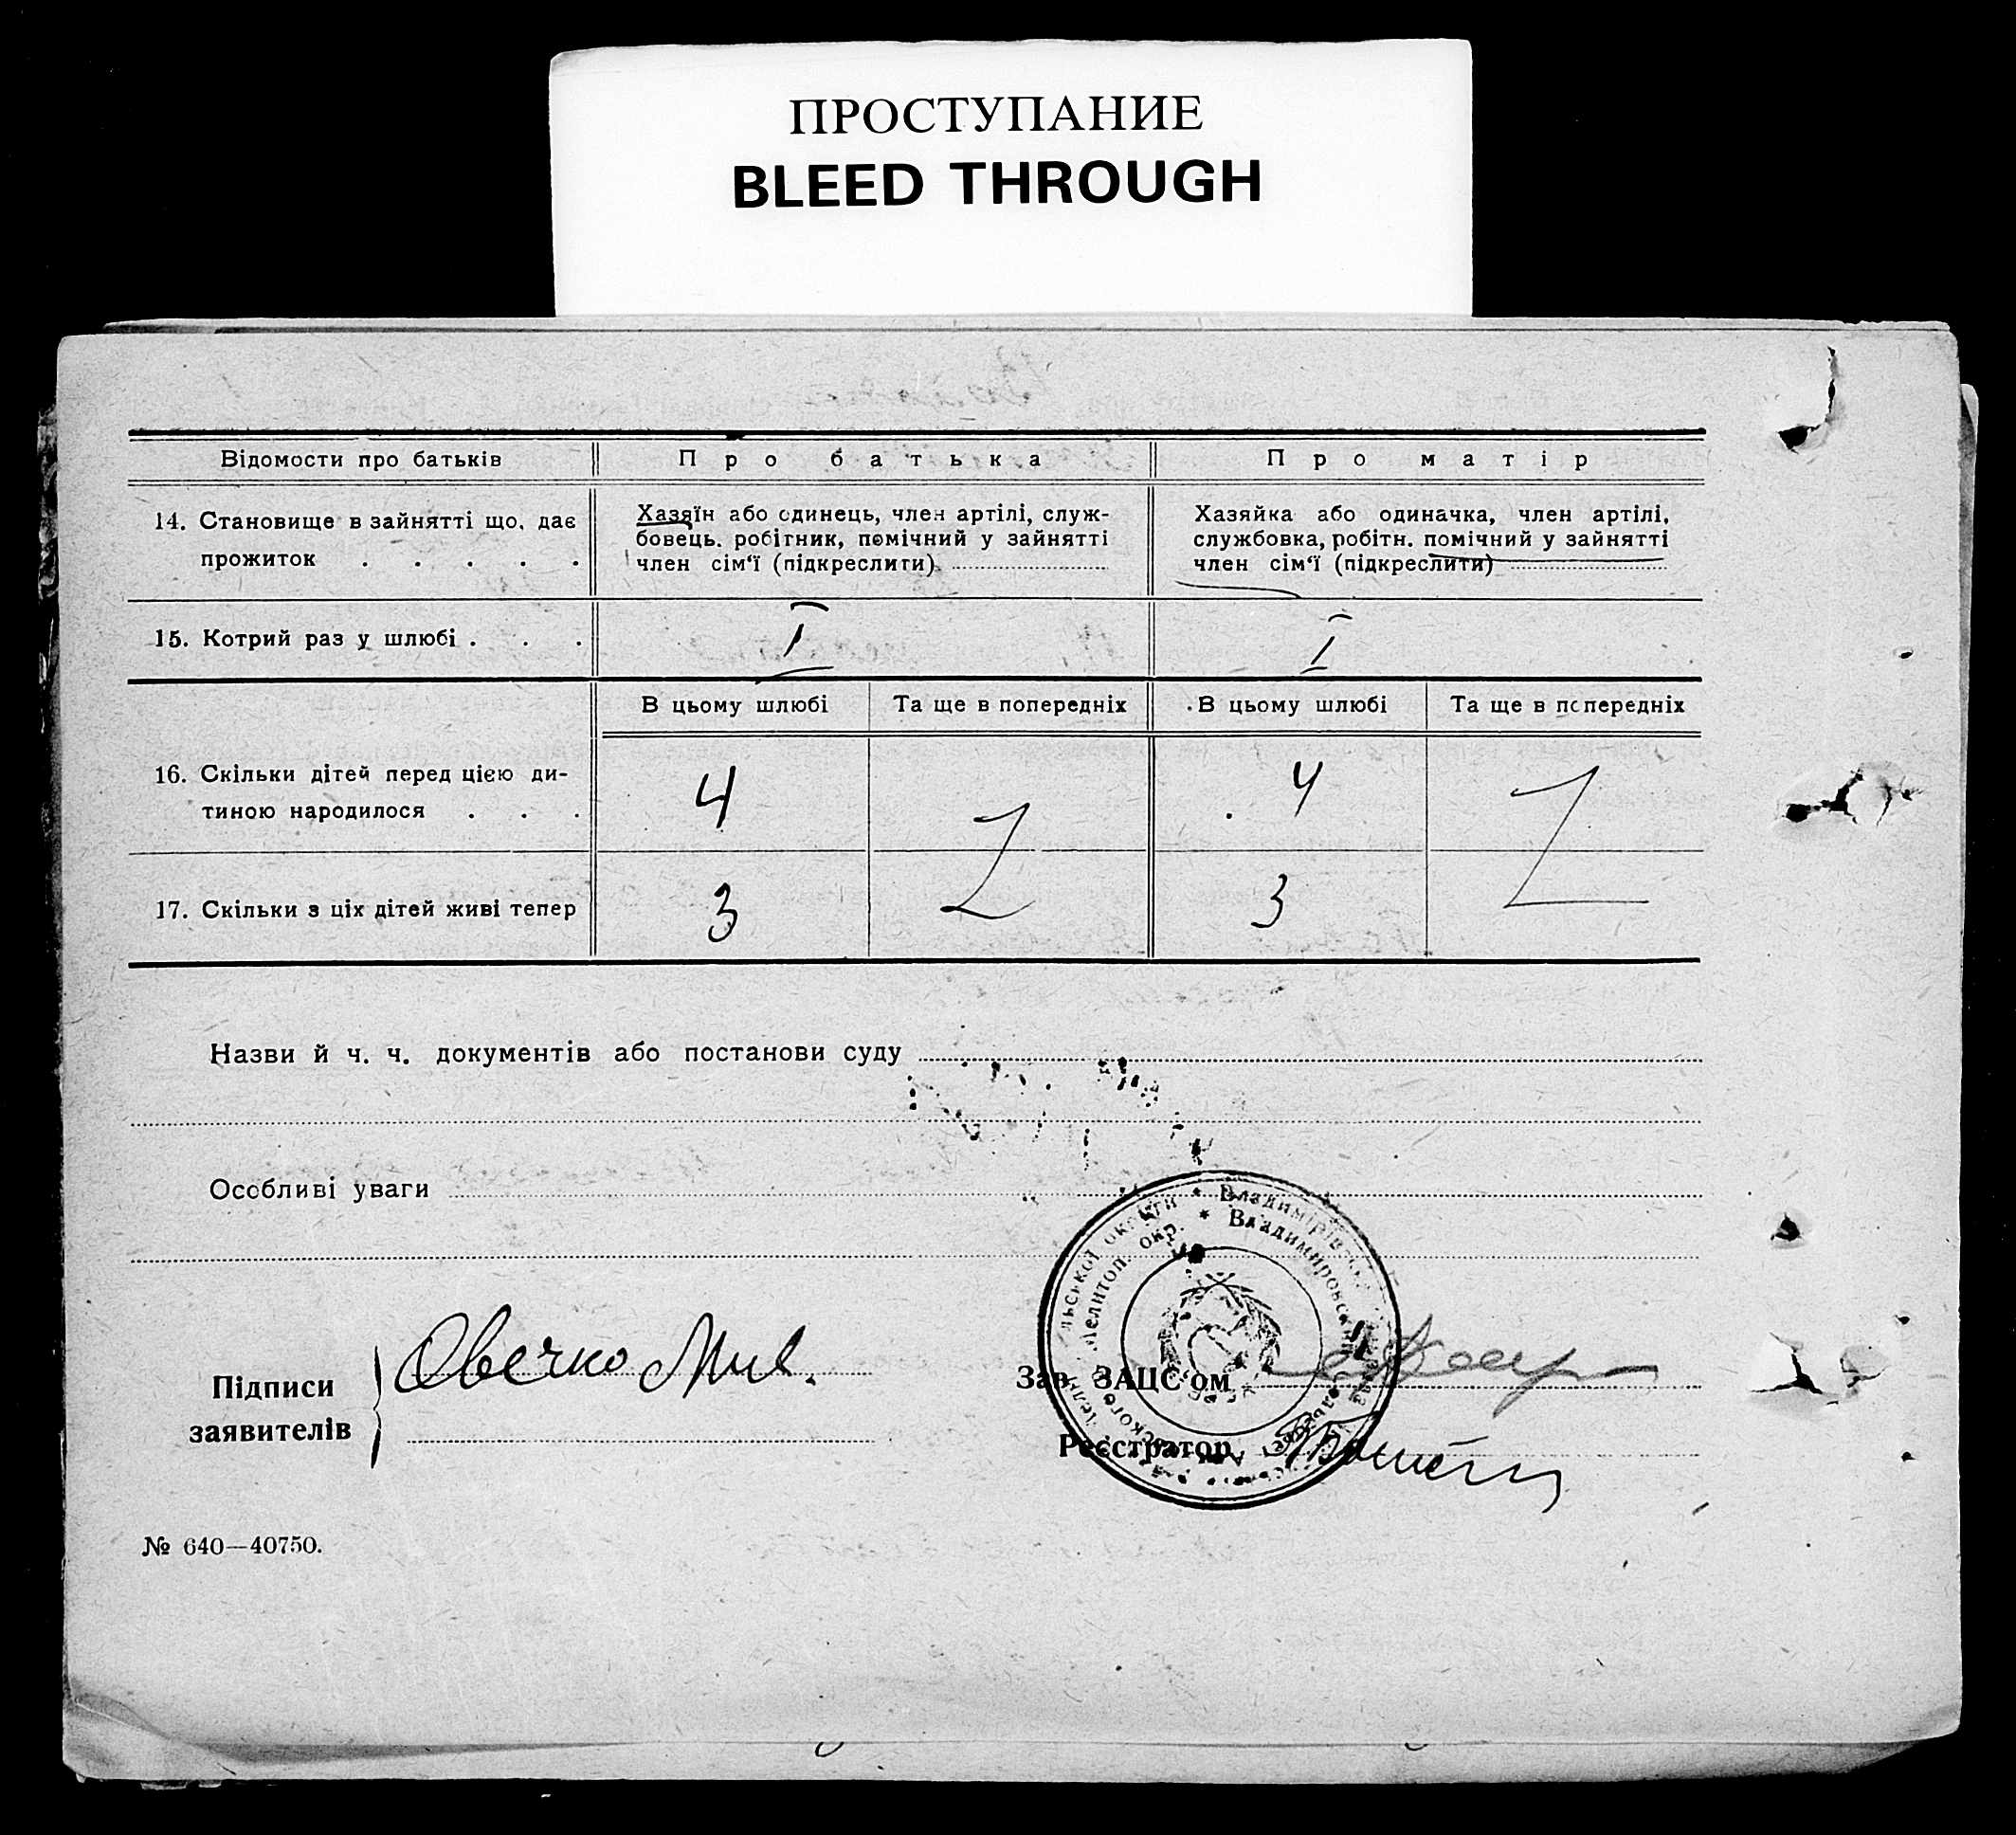 ПРОСТУПАНИЕ
BLEED THROUGH
Відомости про батьків
Про батька
Про матір
14. Становище в зайнятті що, дає
прожиток . . . . .
Хазяїн або одинець, член артілі, служ-
бовець. робітник, помічний у зайнятті
член сім'ї (підкреслити)
Хазяйка або одиначка, член артілі,
службовка, робітн. помічний у зайнятті
член сім'ї (підкреслити)
15. Котрий раз у шлюбі . . .
I
I
В цьому шлюбі
Та ще в попередніх
В цьому шлюбі
Та ще в попередніх
16. Скільки дітей перед цією ди-
тиною народилося . . .
4
4
17. Скільки з ціх дітей живі тепер
3
3
Назви й ч. ч. документів або постанови суду
Особливі уваги
Підписи
заявителів
Овечко Мих.
Зав. ЗАЦС'ом
Реєстратор
Владимировск
Мелитоп. окр.
№ 640—40750.